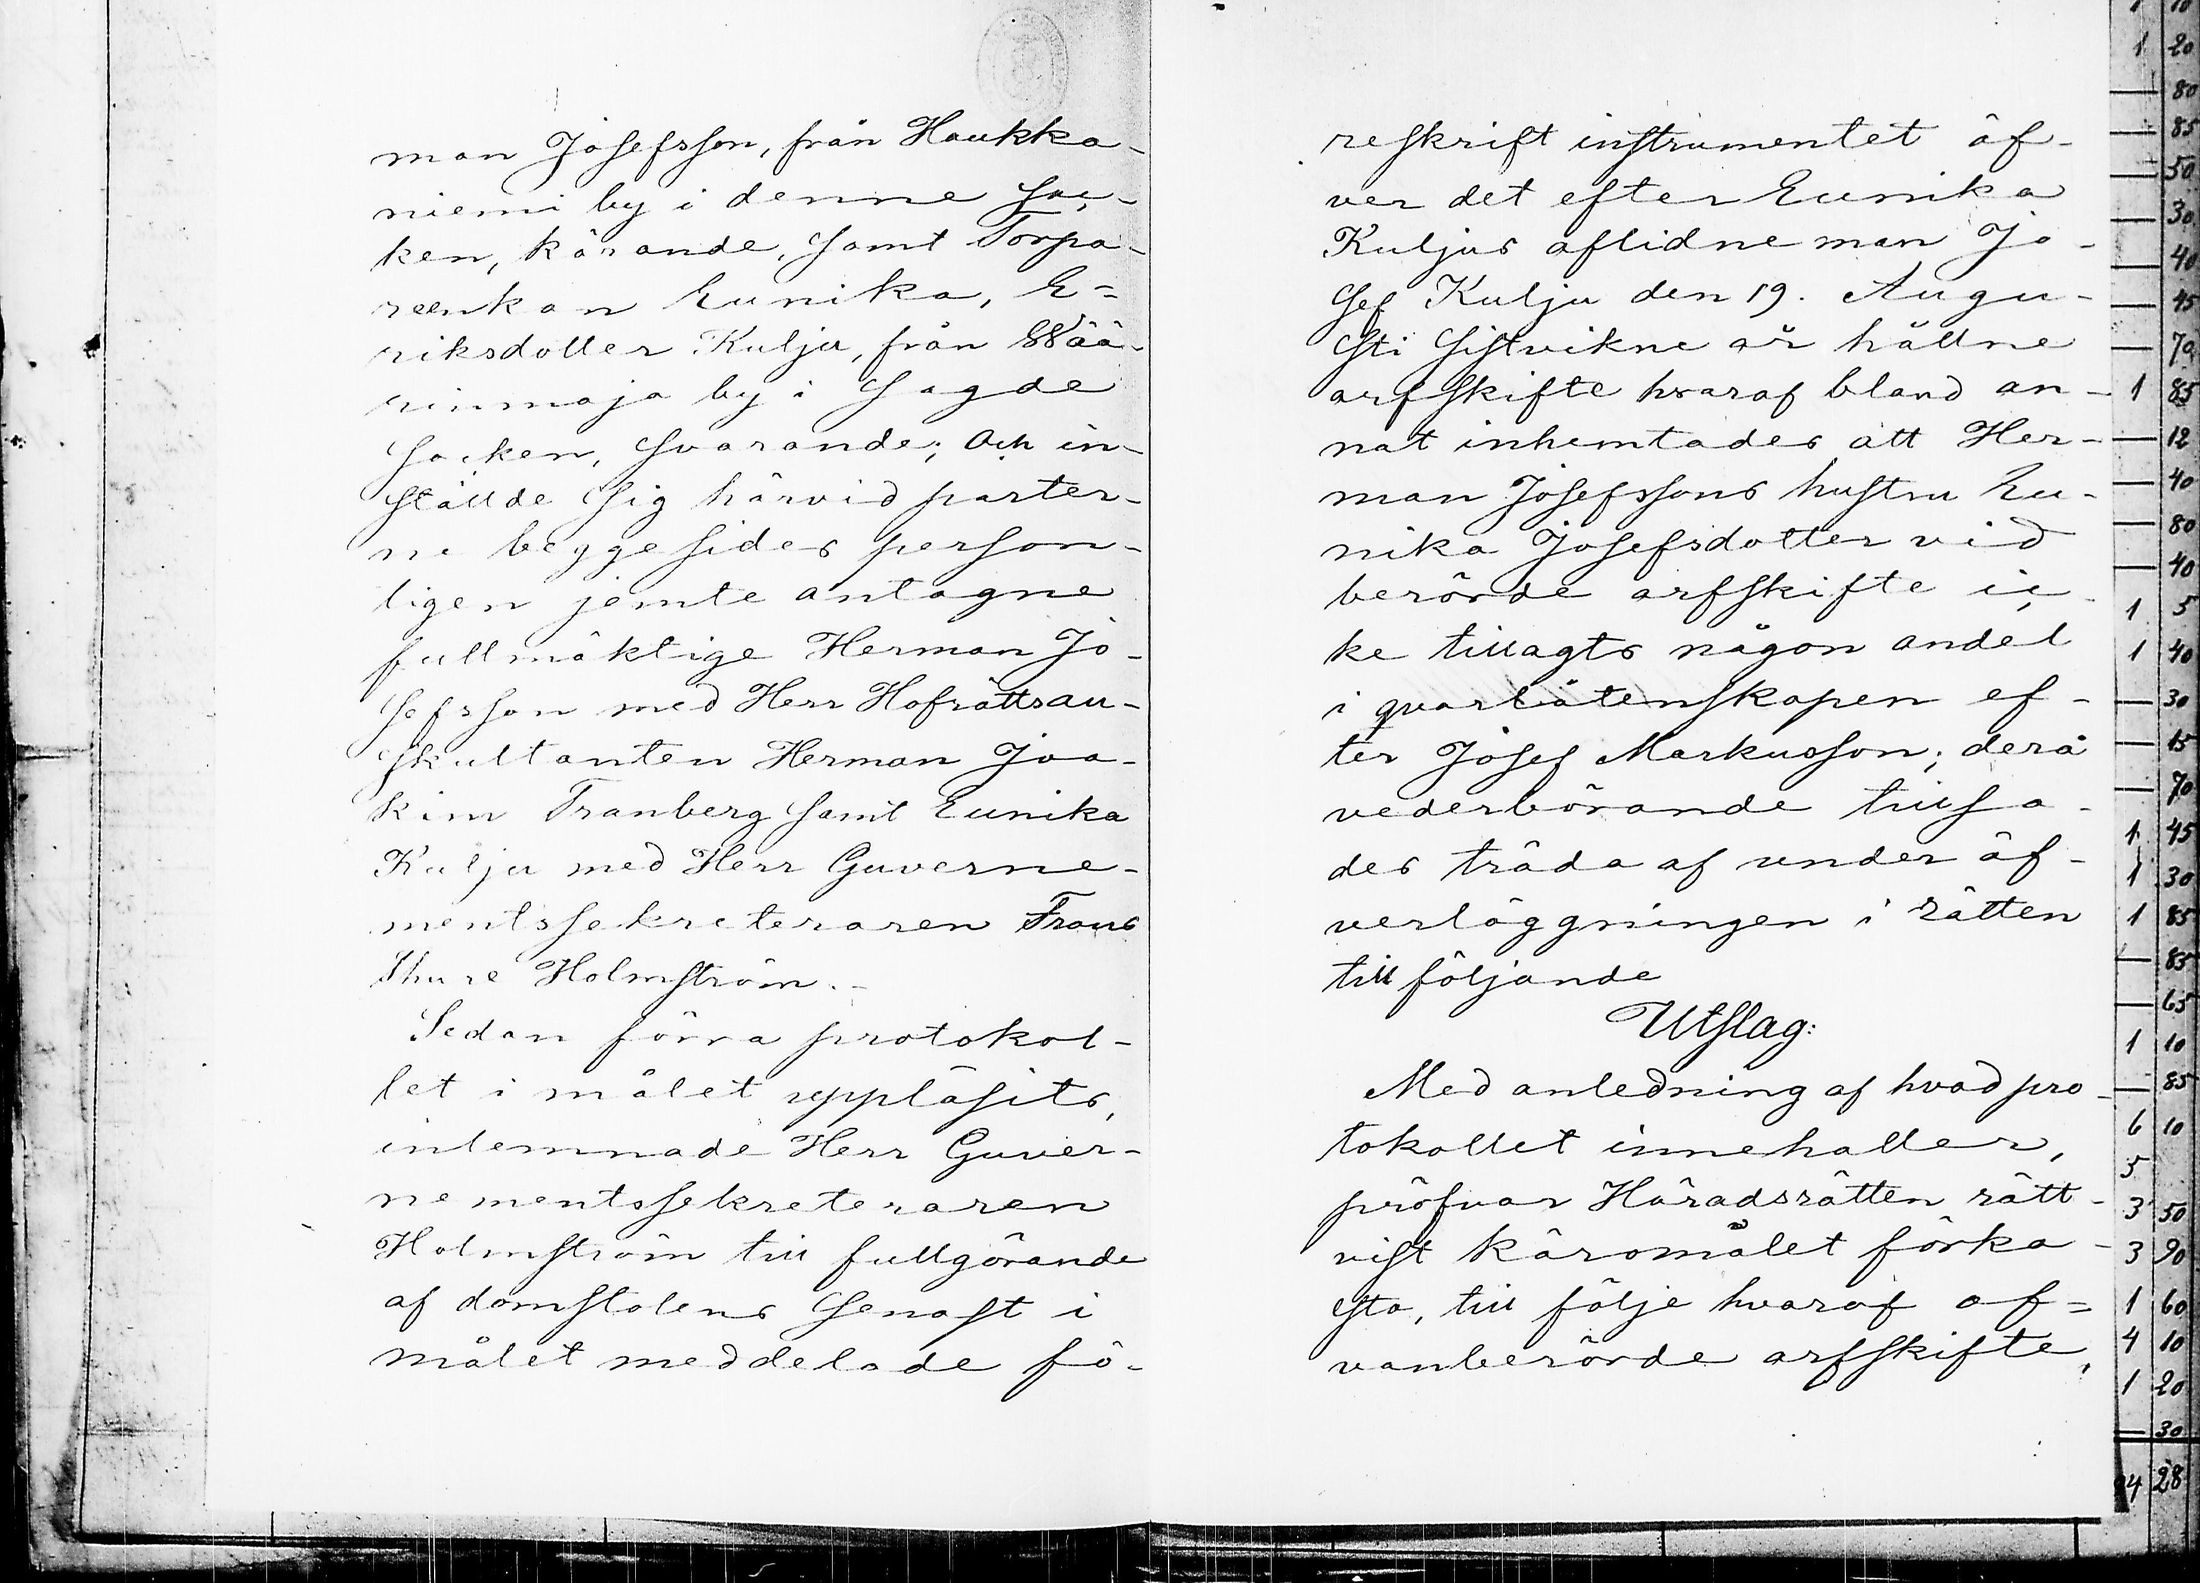 man Josefsson, från Haukka-
niemi by i denne soc-
ken, kärande, samt Torpa-
reenkan Eunika, E=
riksdotter Kulju, från Wää-
rinmaja by i sagde
socken, svarande; Och in-
ställde sig härvid parter-
ne beggesides person-
ligen jemte antagne
fullmäktige Herman Jo-
sefsson med Herr Hofrättsau-
skultanten Herman Joa-
kim Tranberg samt Eunika
Kulju med Herr Guverne-
mentssekreteraren Frans
Thure Holmström.-
Sedan förra protokol-
let i målet uppläsits,
inlemnade Herr Guver-
nementssekreteraren
Holmström till fullgörande
af domstolens senast i
målet meddelade fö-
reskrift instrumentet öf-
ver det efter Eunika
Kuljus aflidne man Jo-
sef Kulju den 19. Augu-
sti sistvikne år hållne
arfskifte hvaraf bland an-
nat inhemtades att Her-
man Josefssons hustru Eu-
nika Josefsdotter vid
berörde arfskifte ic-
ke tillagts någon andel
i qvarlåtenskapen ef-
ter Josef Markusson; derå
vederbörande tillsa-
des träda af under öf-
verläggningen i rätten
till följande
Utslag:
Med anledning af hvad pro-
tokollet innehåller,
pröfvar Häradsrätten rätt-
vist käromålet förka-
sta, till följe hvaraf of=
vanberörde arfskifte,
1 20
— 80
— 85
— 50
— 30
— 40
— 45
— 70
1 85
— 12
— 40
— 80
— 40
1 5
1 40
— 30
— 15
— 70
1 45
1 30
1 85
— 85
— 65
1 10
— 85
6 10
5
3 50
3 90
1 60
4 10
1 20
— 30
4 28